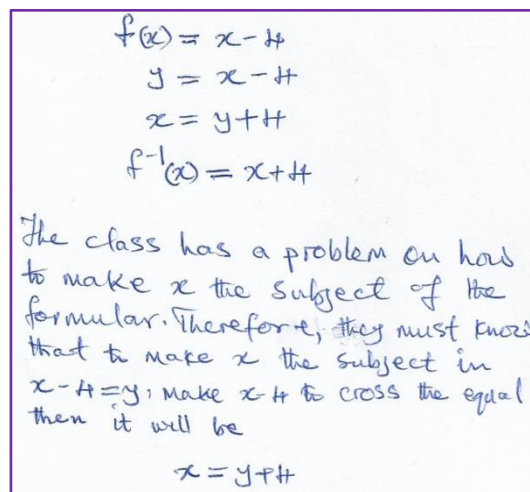 f(x) = x-4
y = x-4
x = y+4
f⁻¹(x) = x+4
The class has a problem on how
to make x the subject of the
formular. Therefore, they must know
that to make x the subject in
x-4=y, make x-4 to cross the equal
then it will be
x = y+4